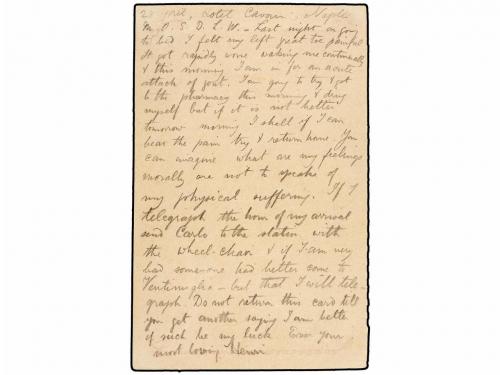 23 April, Hotel Cavour, Naples
M. O. S. D. L. W. - Last night on going
to bed I felt my left great toe painful
It got rapidly worse waking me continually
& this morning I am in for an acute
attack of gout. I am going to try & get
to the pharmacy this morning & drug
myself but if it is not better
tomorrow morning I shall if I can
bear the pain try & return home. You
can imagine what are my feelings
morally are not to speak of
my physical suffering. If I
telegraph the hour of my arrival
send Carlo to the station with
the wheel-chair & if I am very
bad some-one had better come to
Ventimiglia - but that I will tele-
graph. Do not return this card till
you get another saying I am better
if such be my luck. Ever your
most loving Henri